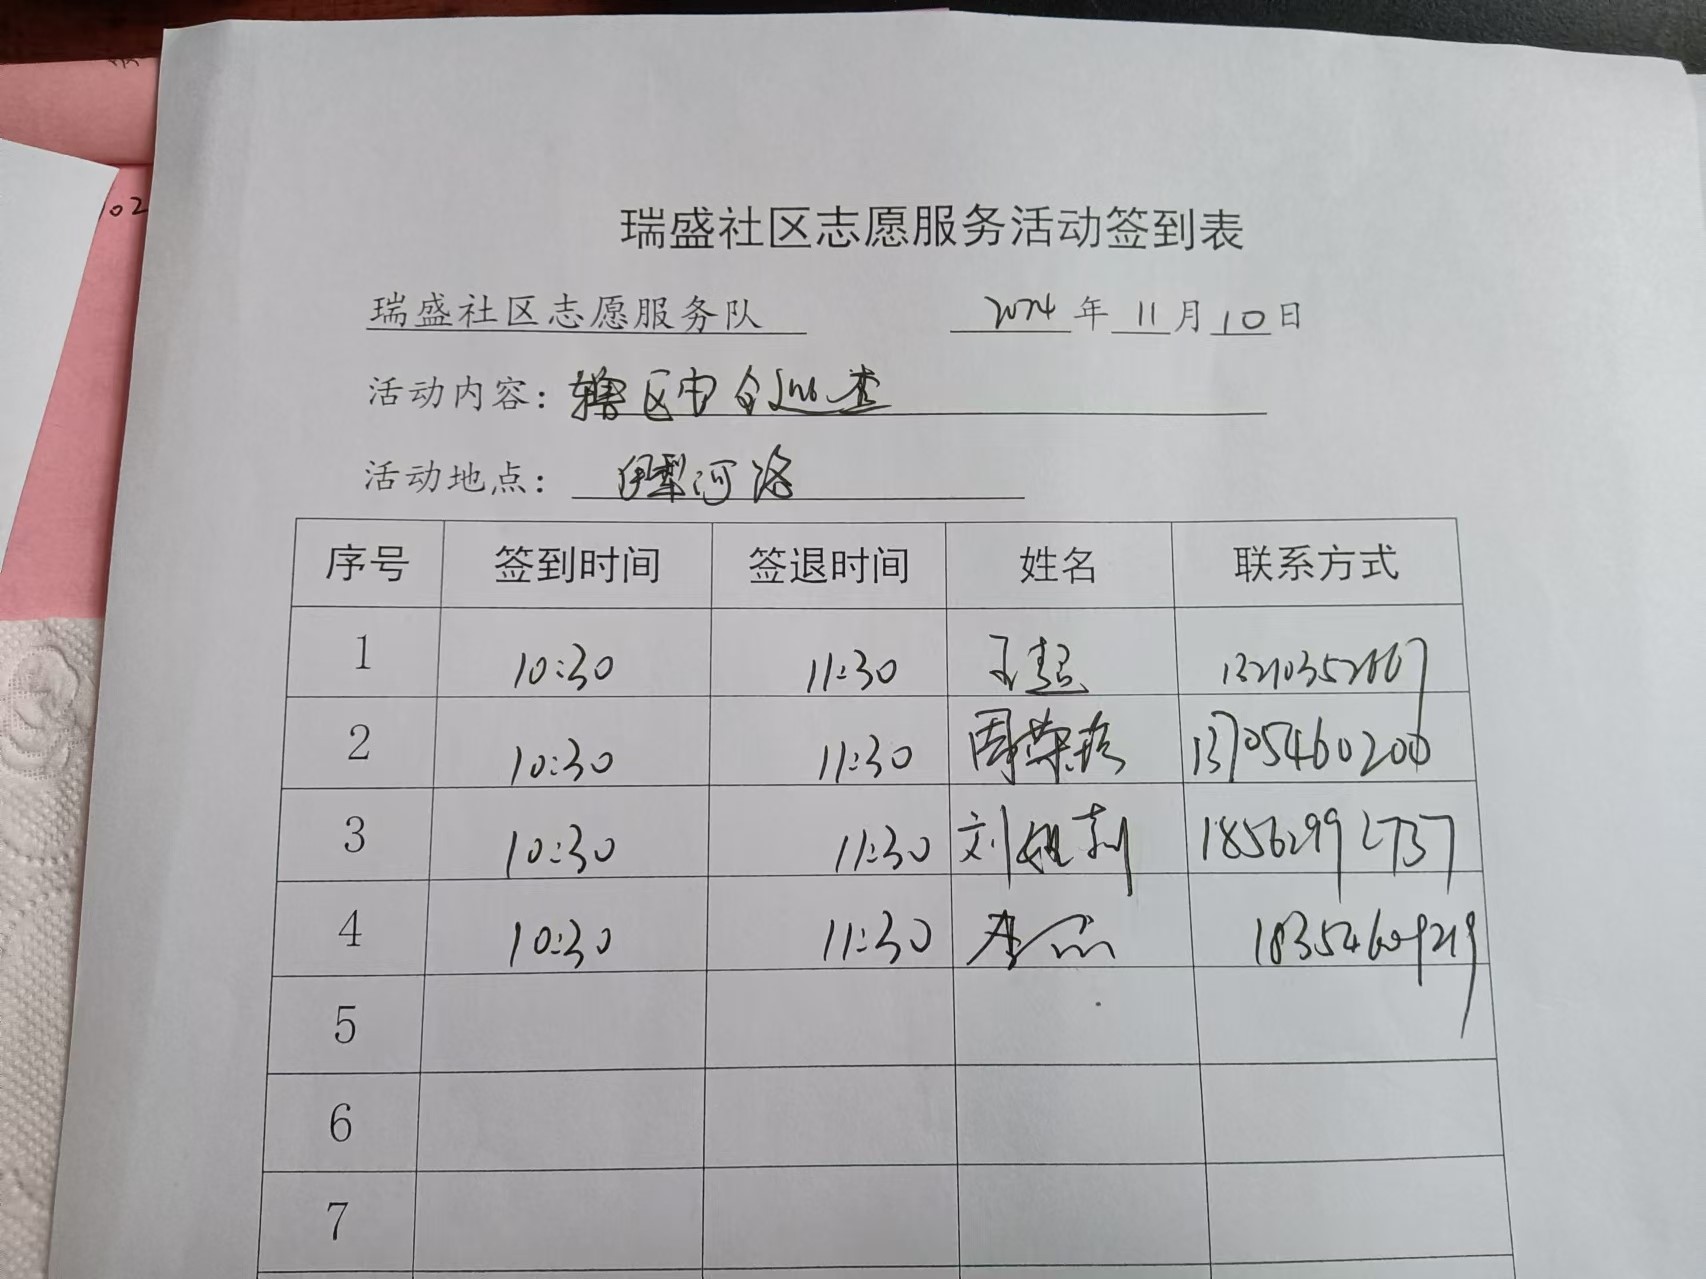 02
瑞盛社区志愿服务活动签到表
瑞盛社区志愿服务队 2024 年 11 月 10 日
活动内容: 辖区内 巡查
活动地点: 伊犁河路
序号 签到时间 签退时间 姓名 联系方式
1 10:30 11:30 王超
2 10:30 11:30 周荣 13705460200
3 10:30 11:30 刘 莉 18562992737
4 10:30 11:30 李 18354609219
5
6
7